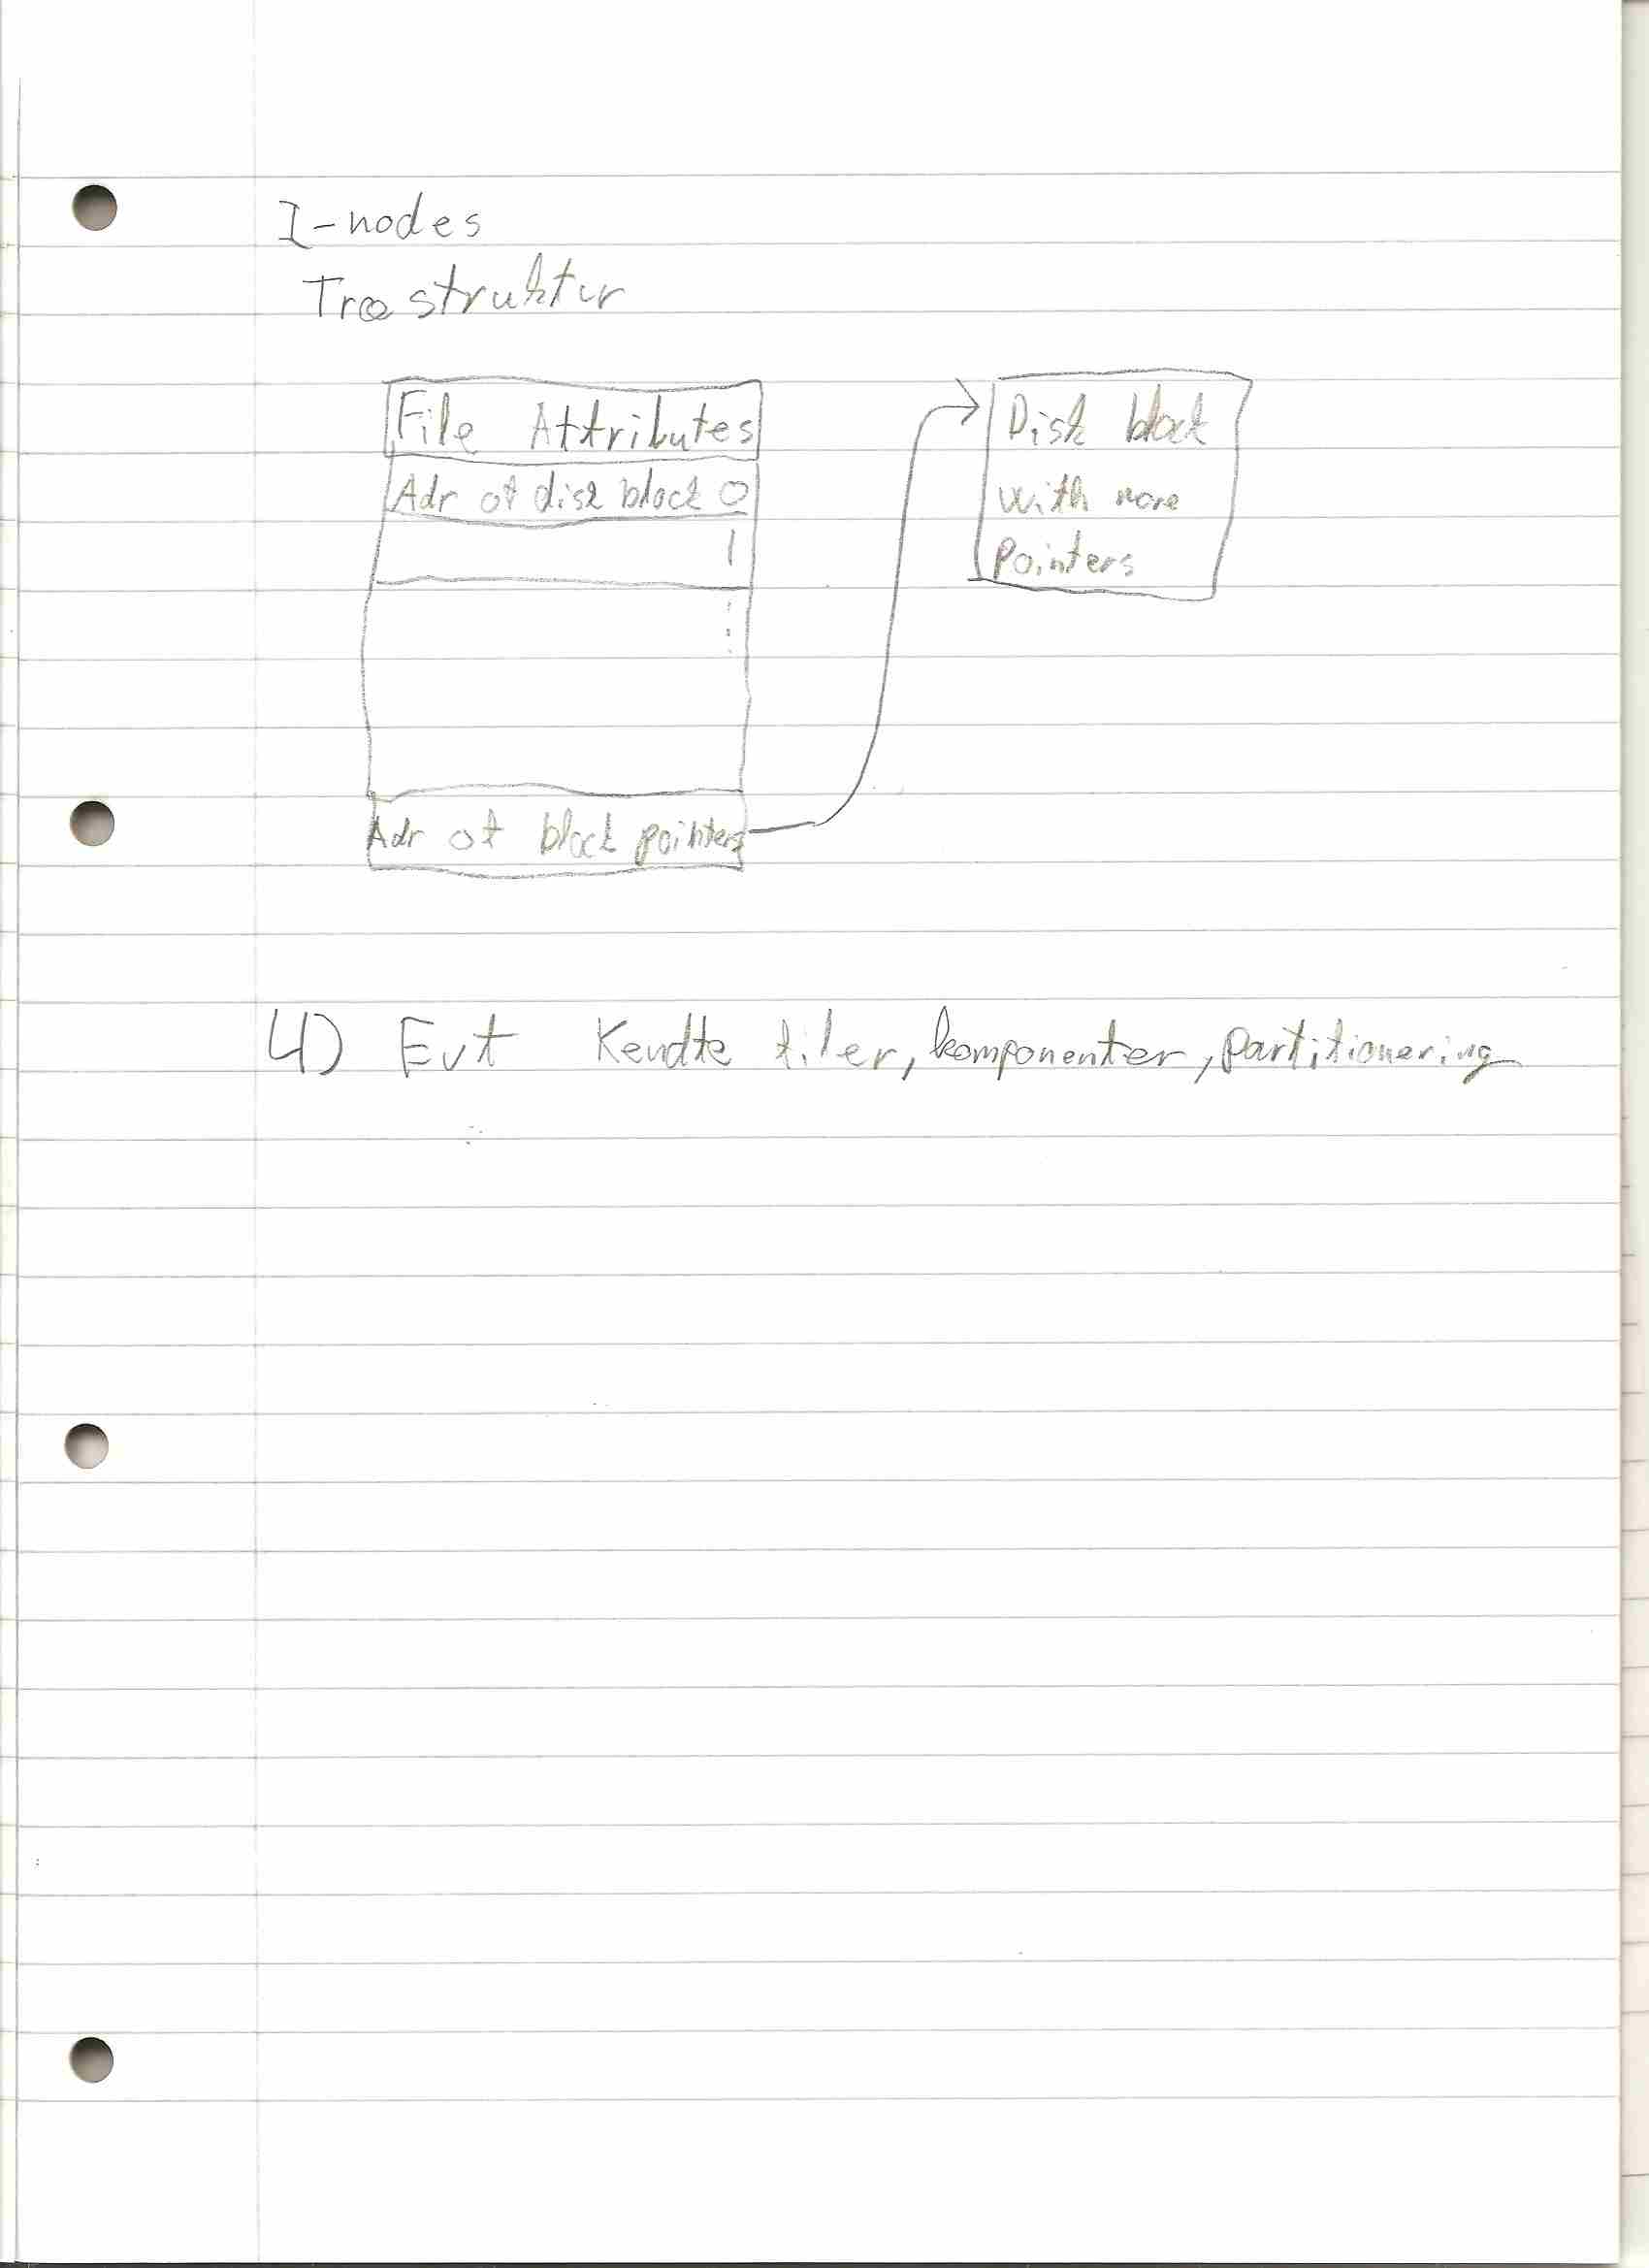 I-nodes
Træstruktur
File Attributes
Adr of disk block 0
1
⋮
Adr of block pointers
Disk block
with more
Pointers
4) Evt Kendte filer, komponenter, partitionering